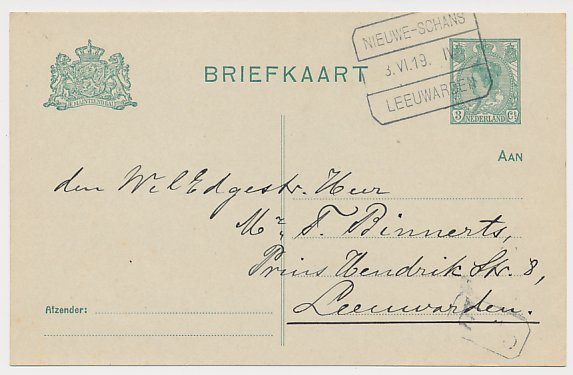 NIEUWE-SCHANS
3.VI.19. IV
LEEUWARDEN
BRIEFKAART
3 Ct
NEDERLAND
AAN
den WelEdgestr. Heer
Mr. F. Binnerts,
Prins Hendrik Str. 8,
Leeuwarden.
Afzender: